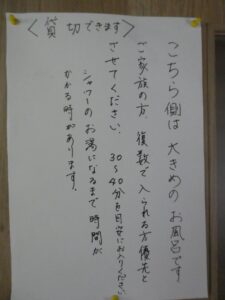 〈貸切できます〉
こちら側は大きめのお風呂です
ご家族の方、複数で入られる方優先と
させてください。30〜40分を目安にお入りください
シャワーのお湯になるまで時間が
かかる時があります。